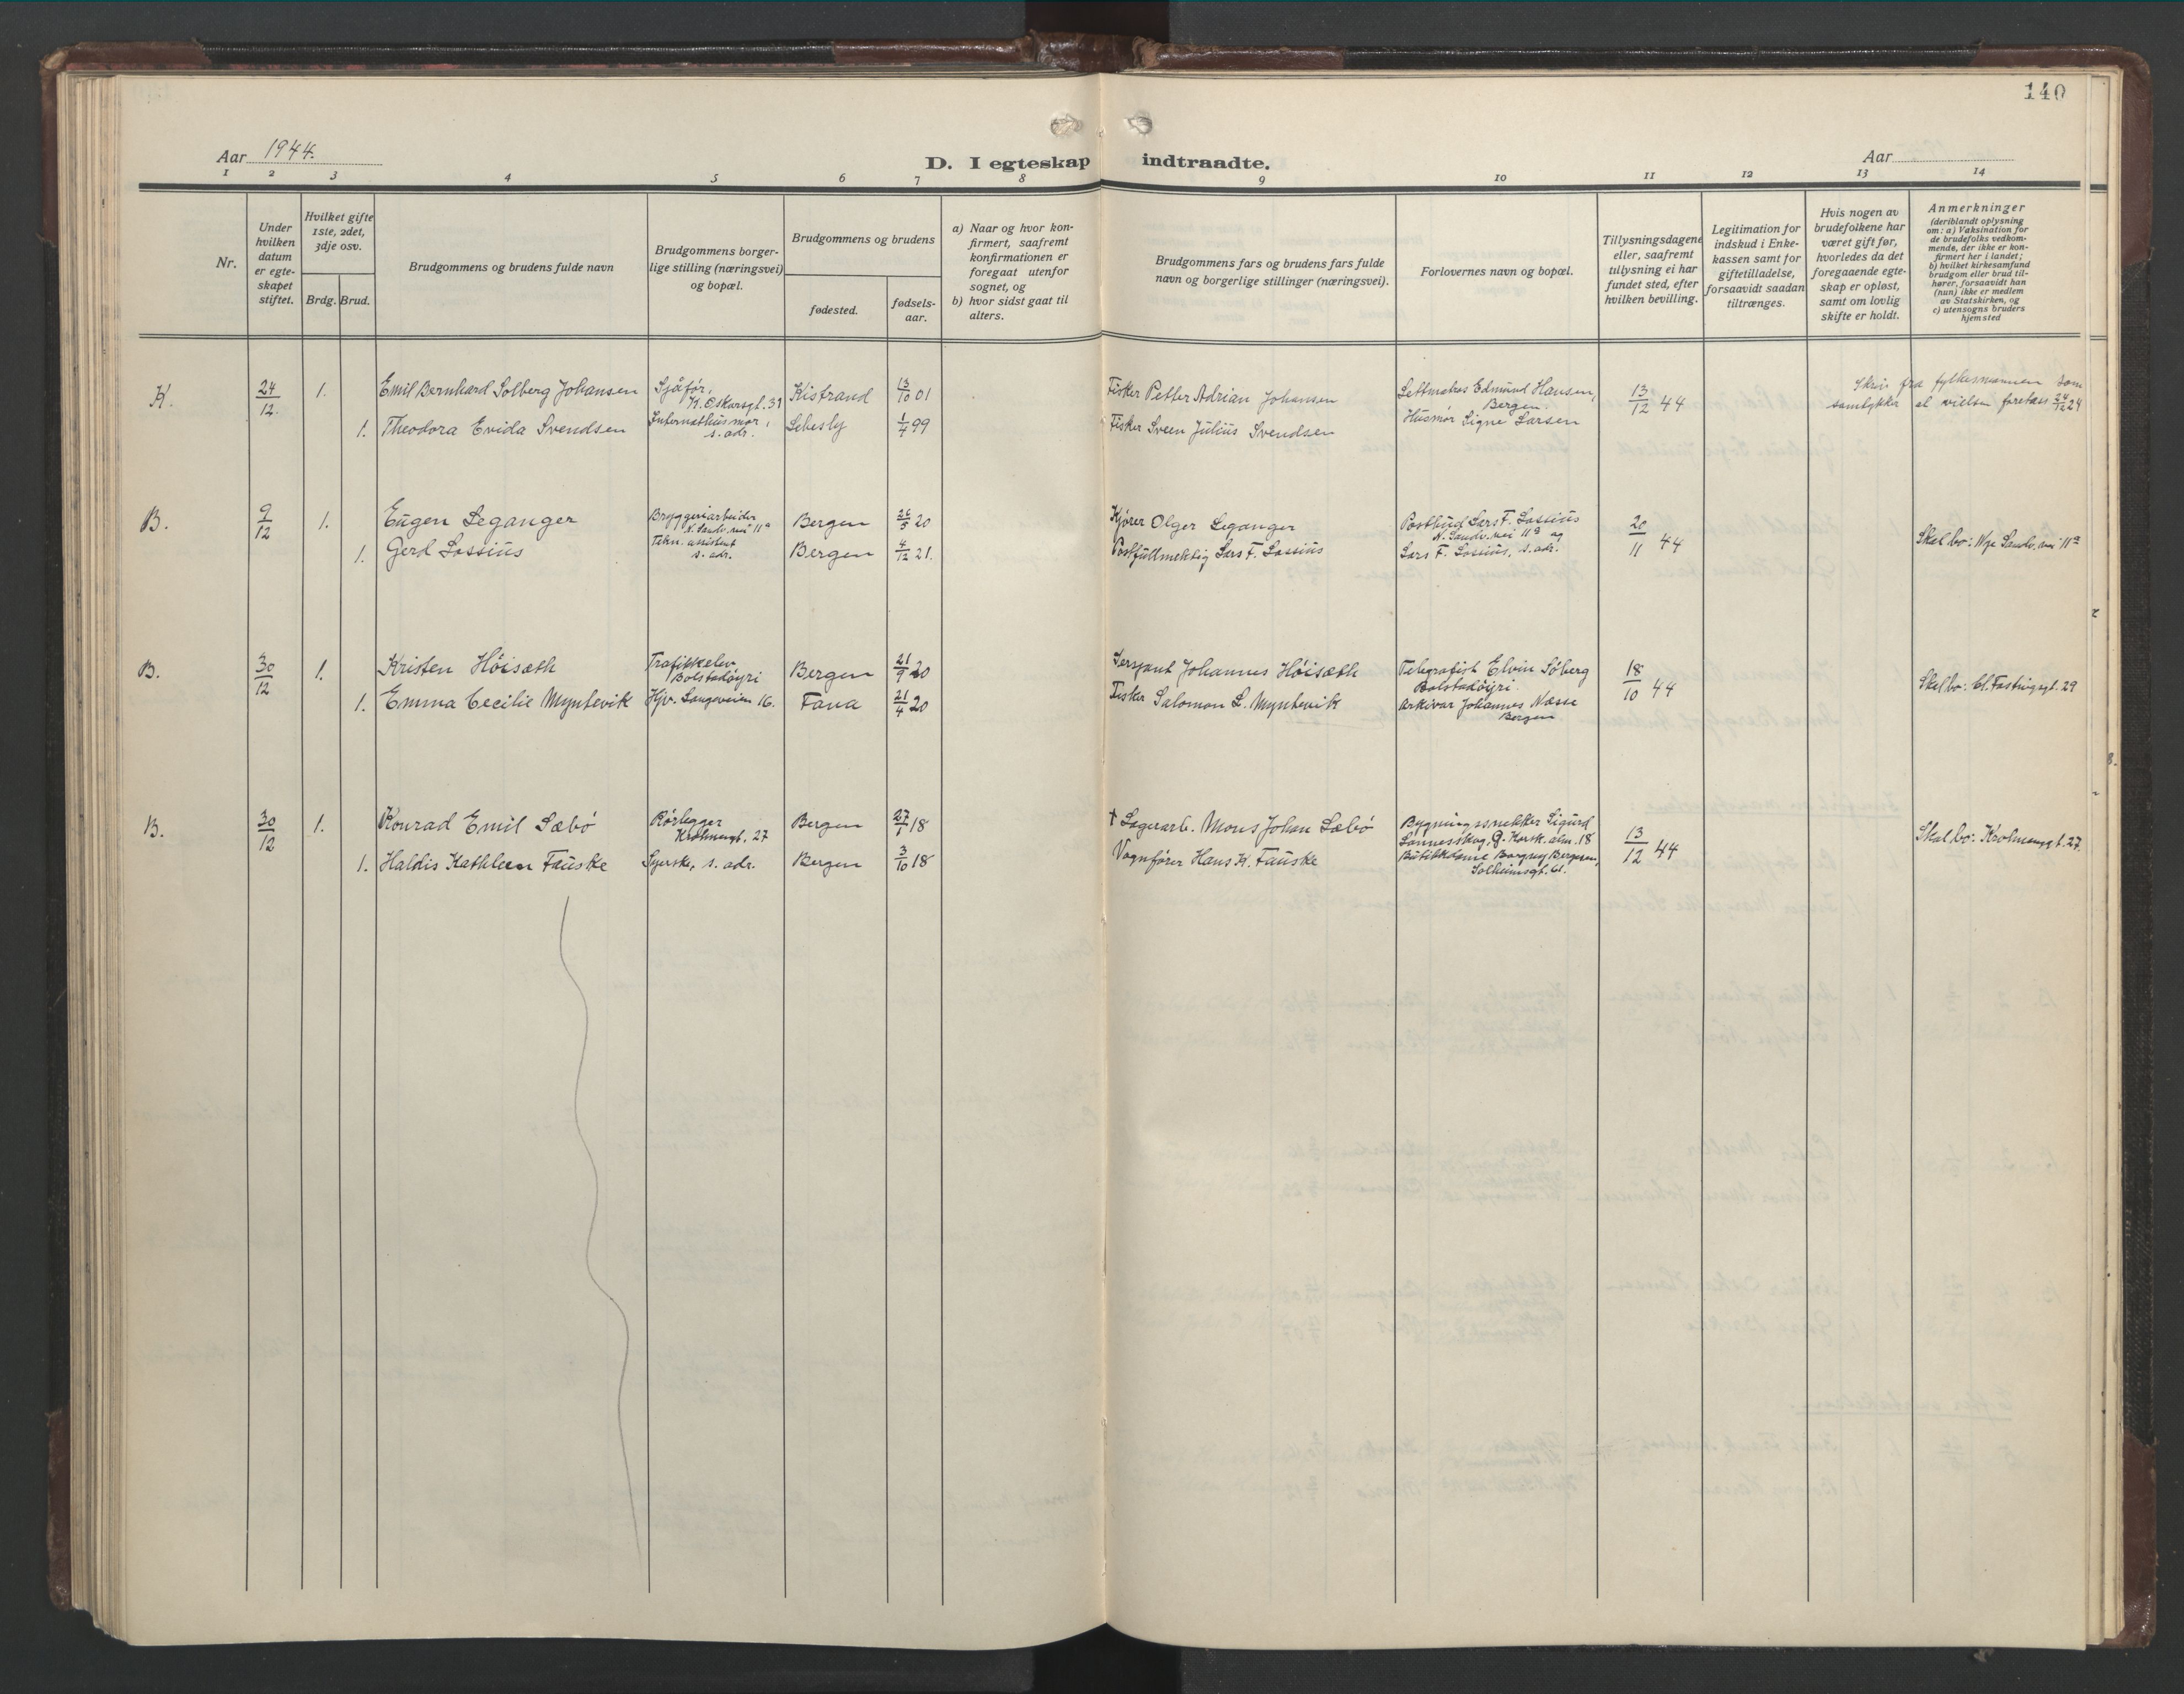 140
Aar 1944.
D. I egteskap indtraadte.
Aar
1 2 3 4 5 6 7 8 9 10 11 12 13 14
Nr.
Under
hvilken
datum
er egte-
skapet
stiftet.
Hvilket gifte
1ste, 2det,
3dje osv.
Brdg. Brud.
Brudgommens og brudens fulde navn
Brudgommens borger-
lige stilling (næringsvei)
og bopæl.
Brudgommens og brudens
fødested.
fødsels-
aar.
a) Naar og hvor kon-
firmert, saafremt
konfirmationen er
foregaat utenfor
sognet, og
b) hvor sidst gaat til
alters.
Brudgommens fars og brudens fars fulde
navn og borgerlige stillinger (næringsvei).
Forlovernes navn og bopæl.
Tillysningsdagene
eller, saafremt
tillysning ei har
fundet sted, efter
hvilken bevilling.
Legitimation for
indskud i Enke-
kassen samt for
giftetilladelse,
forsaavidt saadan
tiltrænges.
Hvis nogen av
brudefolkene har
været gift før,
hvorledes da det
foregaaende egte-
skap er opløst,
samt om lovlig
skifte er holdt.
Anmerkninger
(deriblandt oplysning
om: a) Vaksination for
de brudefolks vedkom-
mende, der ikke er kon-
firmert her i landet;
b) hvilket kirkesamfund
brudgom eller brud til-
hører, forsaavidt han
(hun) ikke er medlem
av Statskirken, og
c) utensogns bruders
hjemsted
K. 24/12. 1. Emil Bernhard Solberg Johansen
Sjåfør,
K. Oskarsgt. 31
Kistrand 13/10 01
Fisker Petter Adrian Johansen
Edmund Hansen,
Bergen
13/12 44
Skriv fra fylkesmannen som
samtykker at vielsen foretas 24/12 24
1. Theodora Evida Svendsen
Internathusmor,
s. adr.
Lebesby 1/4 99
Fisker Sveen Julius Svendsen
Husmor Signe Larsen
B. 9/12 1. Eugen Leganger
Bryggeriarbeider
N. Sandv.vei 11a
Bergen 26/5 20
Kjører Olger Leganger
Postbud Lars F. Lossius
N. Sandv.vei 11a og
20/11 44
Skal bo: Nye Sandv.vei 11a
1. Gerd Lossius
Tekn. assistent
s. adr.
Bergen 4/12 21.
Postfullmektig Lars F. Lossius
Lars F. Lossius, s. adr.
B. 30/12 1. Kristen Höisæth
Trafikkelev
Bolstadöyri
Bergen 21/9 20
Sersjant Johannes Höisæth
Telegrafist Elvin Söberg
Bolstadöyri.
18/10 44
Skal bo: Cl. Fastingsgt. 29
1. Emma Cecilie Myntevik
Hjv. Langeveien 16.
Fana 21/4 20
Fisker Salomon L. Myntevik
Arkivar Johannes Næsse
Bergen
B. 30/12 1. Konrad Emil Sæbö
Rörlegger
Krohnengt. 27
Bergen 27/1 18
† Lagerarb. Mons Johan Sæbö
Bygningssnekker Sigurd
Lønnesskog, G. Korsk. alm. 18
13/12 44
Skal bo: Krohnengt. 27.
1. Haldis Kathleen Fauske
Syerske, s. adr.
Bergen 3/10 18
Vognfører Hans K. Fauske
Butikkdame Borgny Bergesen,
Solheimsgt. 61.